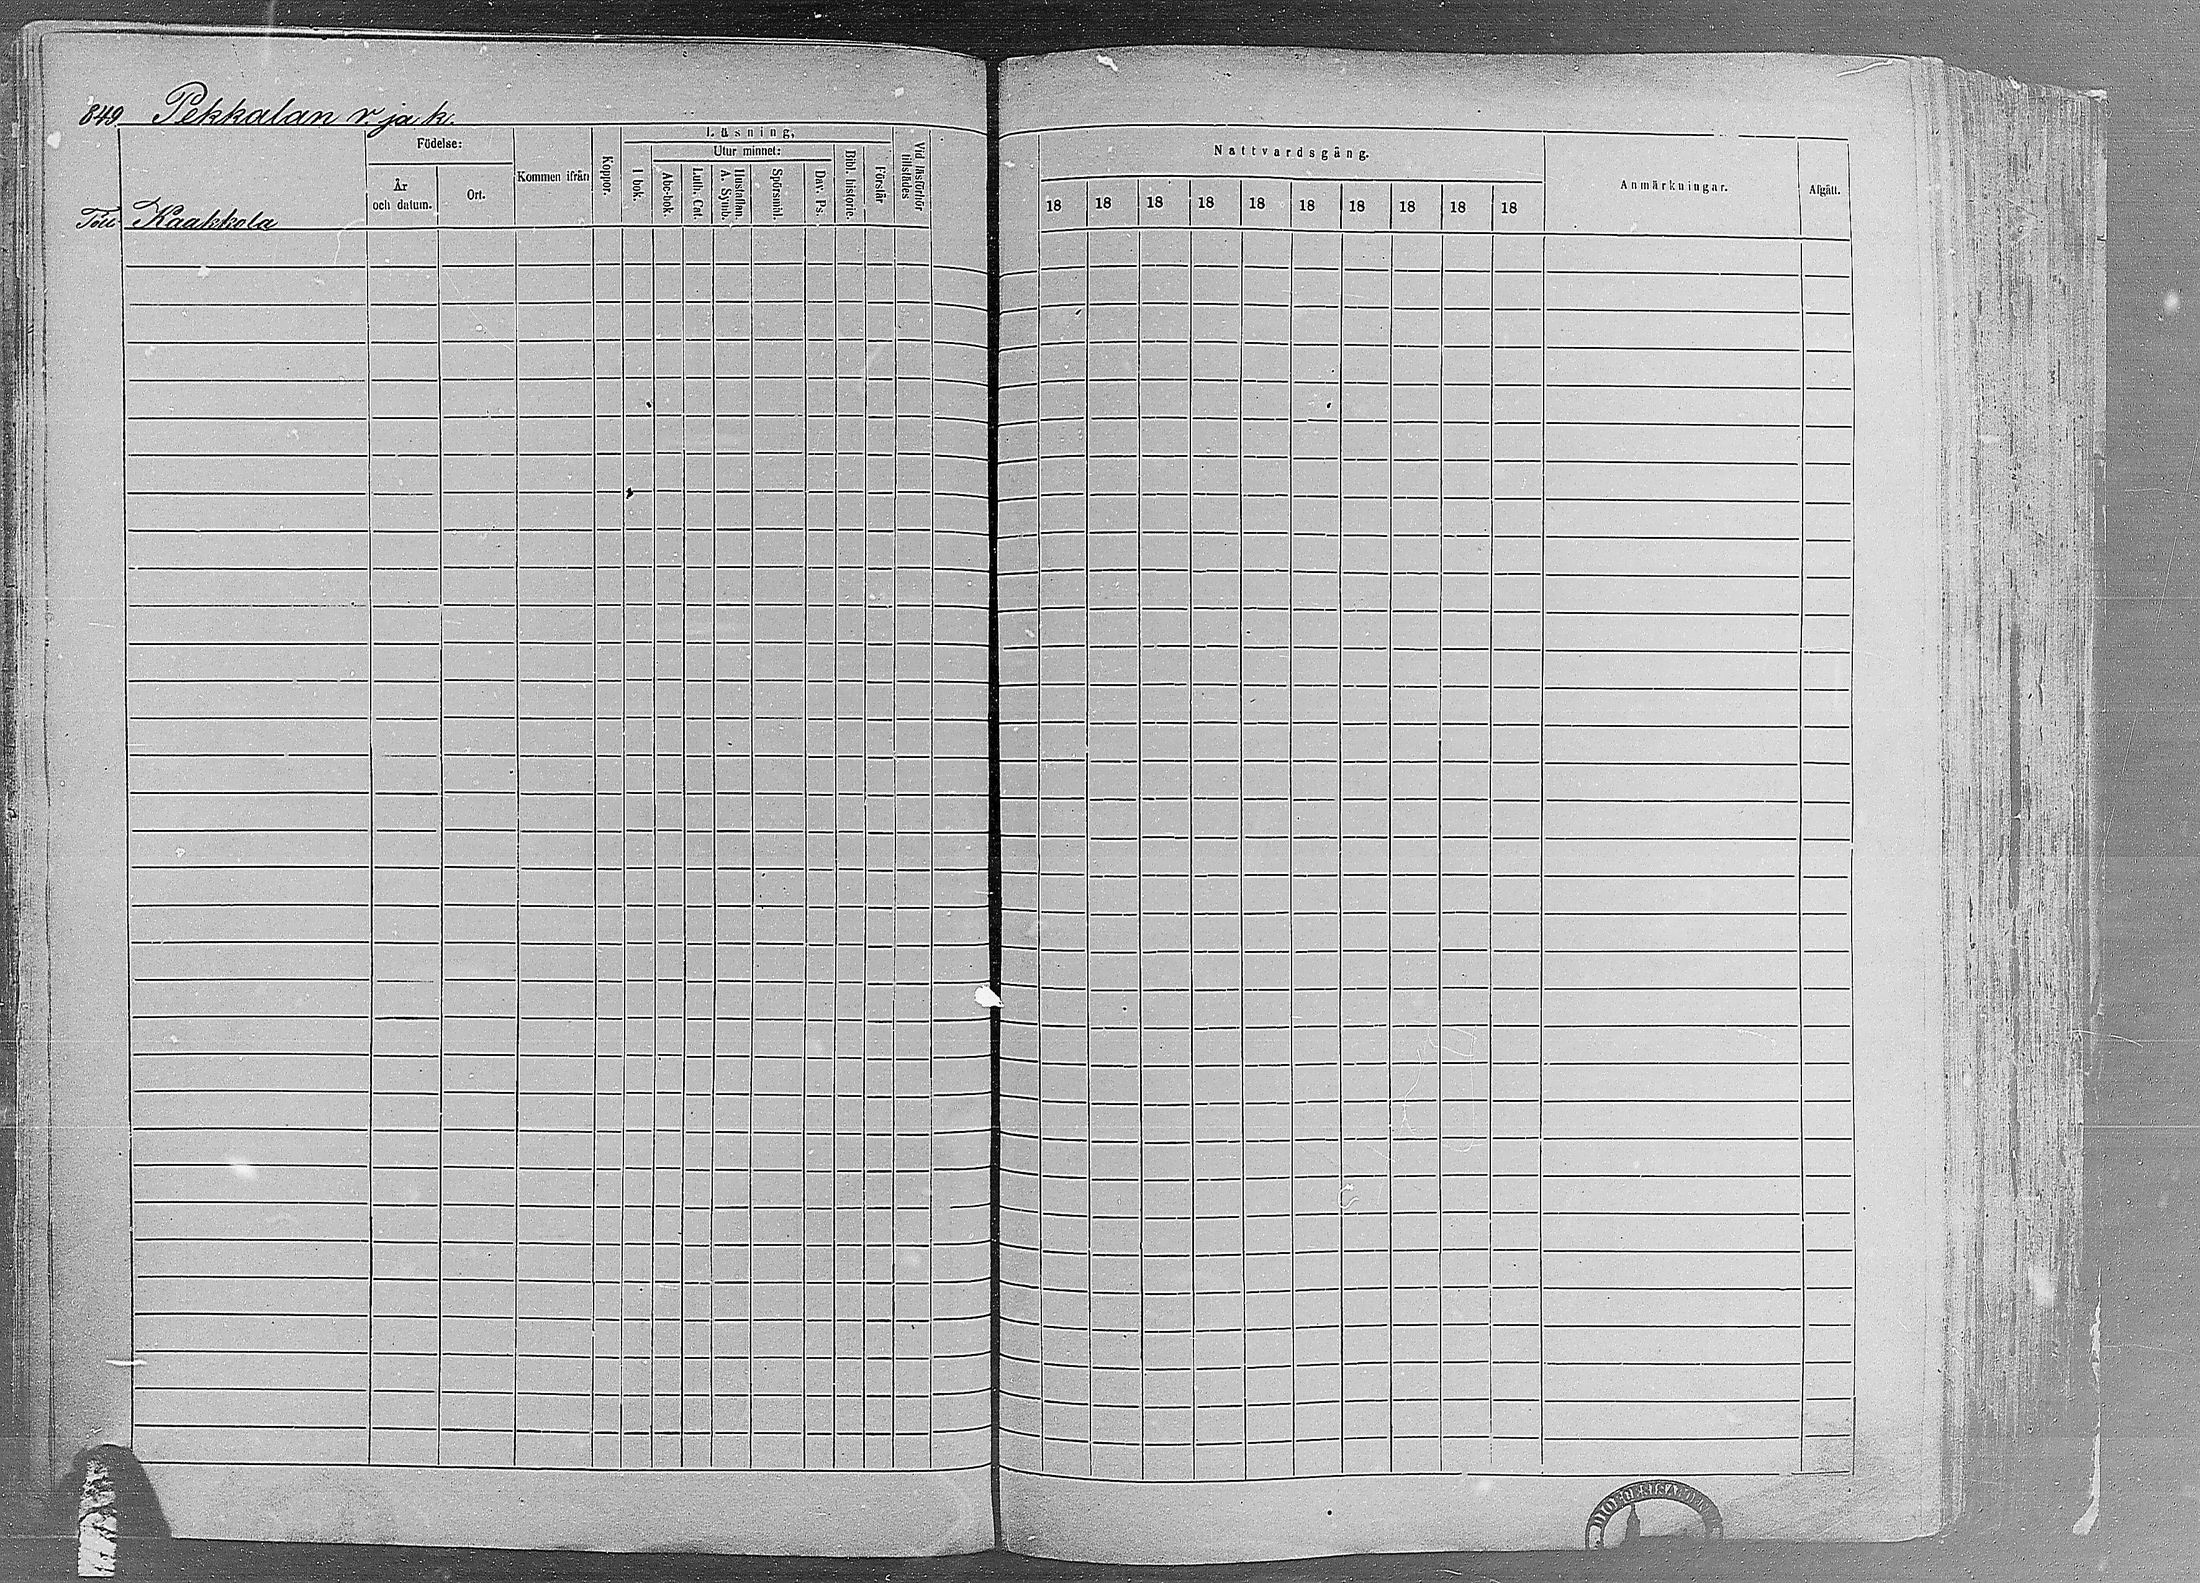 849. Pekkalan r. ja k.
Läsning,
Födelse:
Utur minnet:
År och datum.
Ort.
Kommen ifrån
Koppor.
I bok.
Abc-bok.
Luth. Cat.
Hustaflan. A. Symb.
Spörsmål.
Dav. Ps.
Bibl. historie.
Förstår
Vid läsförhör tillstädes
Kaakkola
Nattvardsgång.
Anmärkningar.
Afgått.
18 18 18 18 18 18 18 18 18 18